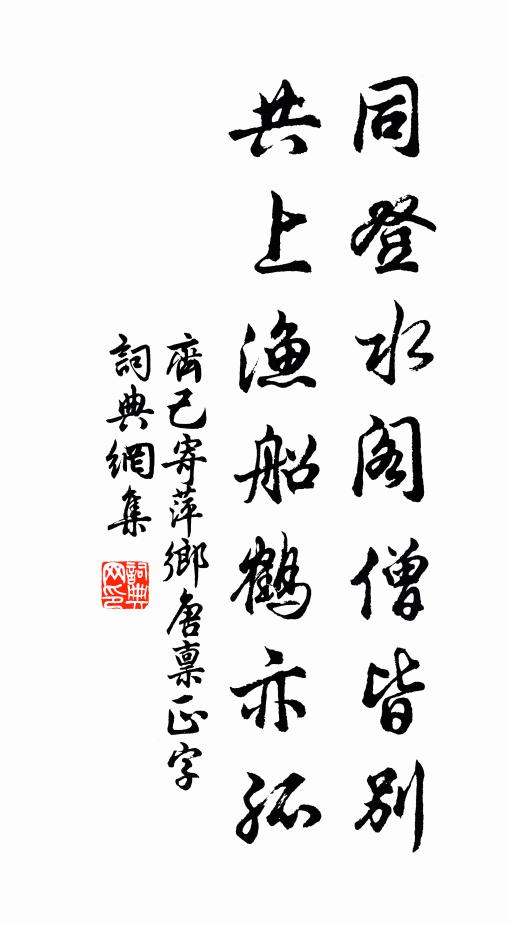 同登水阁僧皆别
共上渔船鹤亦孤
齊己寄萍鄉唐禀正字
詞典網集
詞典网印